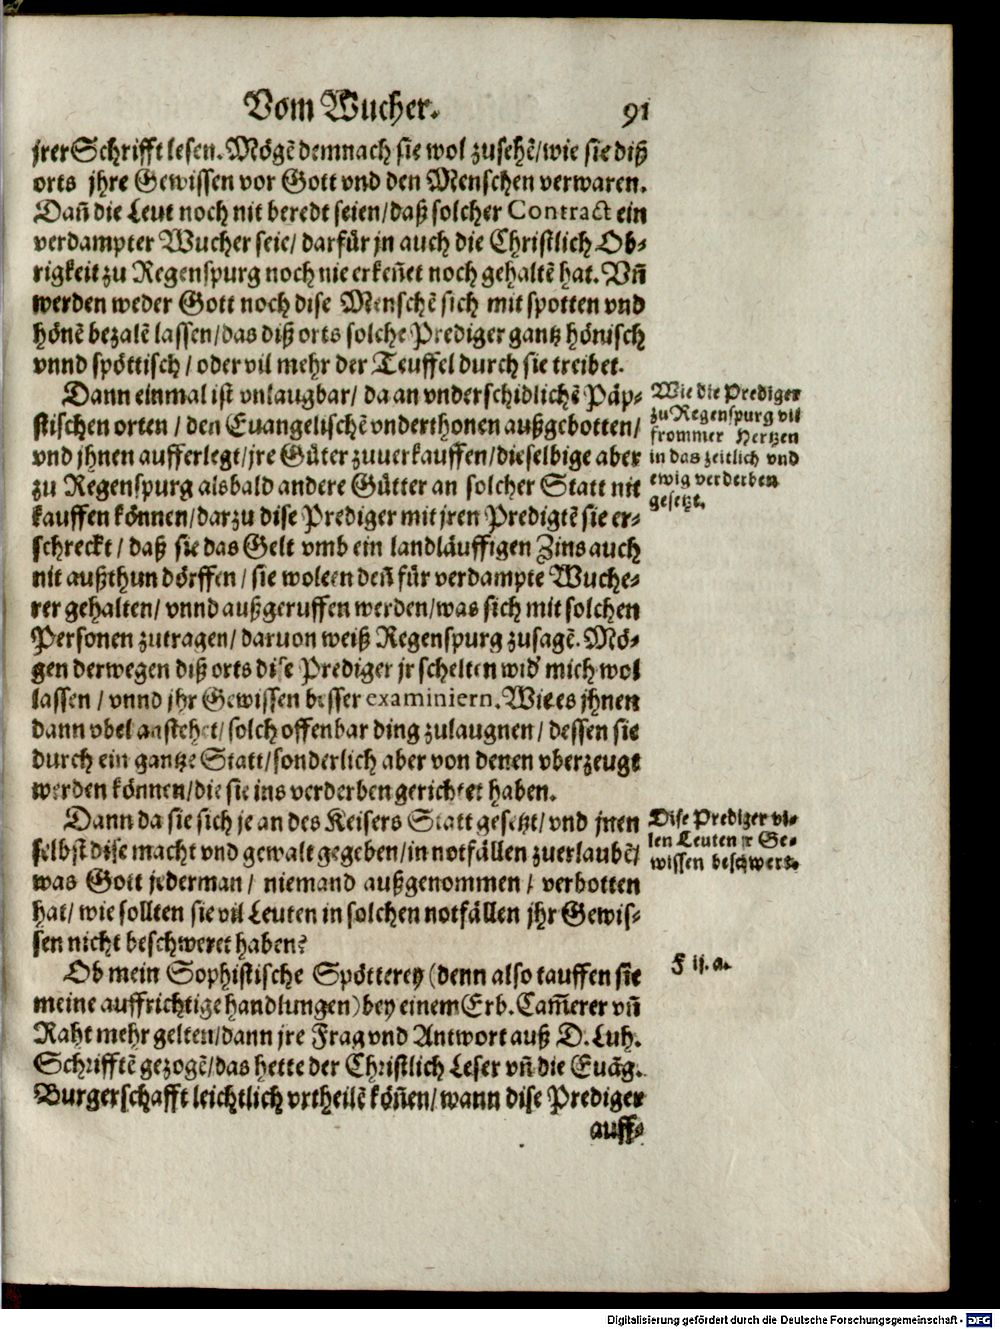 Vom Wucher. 91
jrer Schrifft lesen. Mögẽ demnach sie wol zusehẽ/ wie sie diß
orts jhre Gewissen vor Gott vnd den Menschen verwaren.
Dañ die Leut noch nit beredt seien/ daß solcher Contract ein
verdampter Wucher seie/ darfür jn auch die Christlich Ob-
rigkeit zu Regenspurg noch nie erkeñet noch gehaltẽ hat. Vñ
werden weder Gott noch dise Menschẽ sich mit spotten vnd
hönẽ bezalẽ lassen/ das diß orts solche Prediger gantz hönisch
vnnd spöttisch/ oder vil mehr der Teuffel durch sie treibet.
Dann einmal ist vnlaugbar/ da an vnderschidlichẽ Päp-
stischen orten/ den Euangelischẽ vnderthonen außgebotten/
vnd jhnen aufferlegt/ jre Güter zuuerkauffen/ dieselbige aber
zu Regenspurg alsbald andere Gütter an solcher Statt nit
kauffen können/ darzu dise Prediger mit jren Predigtẽ sie er-
schreckt/ daß sie das Gelt vmb ein landläuffigen Zins auch
nit außthun dörffen/ sie woleen deñ für verdampte Wuche-
rer gehalten/ vnnd außgeruffen werden/ was sich mit solchen
Personen zutragen/ daruon weiß Regenspurg zusagẽ. Mö-
gen derwegen diß orts dise Prediger jr schelten wid' mich wol
lassen/ vnnd jhr Gewissen besser examiniern. Wie es jhnen
dann vbel anstehet/ solch offenbar ding zulaugnen/ dessen sie
durch ein gantze Statt/ sonderlich aber von denen vberzeugt
werden können/ die sie ins verderben gerichtet haben.
Dann da sie sich je an des Keisers Statt gesetzt/ vnd jnen
selbst dise macht vnd gewalt gegeben/ in notfällen zuerlaubẽ/
was Gott jederman/ niemand außgenommen/ verbotten
hat/ wie sollten sie vil Leuten in solchen notfällen jhr Gewis-
sen nicht beschweret haben?
Ob mein Sophistische Spötterey (denn also tauffen sie
meine auffrichtige handlungen) bey einem Erb. Cam̃erer vñ
Raht mehr gelten/ dann jre Frag vnd Antwort auß D. Luh.
Schrifftẽ gezogẽ/ das hette der Christlich Leser vñ die Euãg.
Burgerschafft leichtlich vrtheilẽ köñen/ wann dise Prediger
auff-
Wie die Prediger
zu Regenspurg vil
frommer Hertzen
in das zeitlich vnd
ewig verderben
gesetzt.
Dise Prediger vi-
len Leuten jr Ge-
wissen beschwert.
F ij. a.
Digitalisierung gefördert durch die Deutsche Forschungsgemeinschaft - DFG